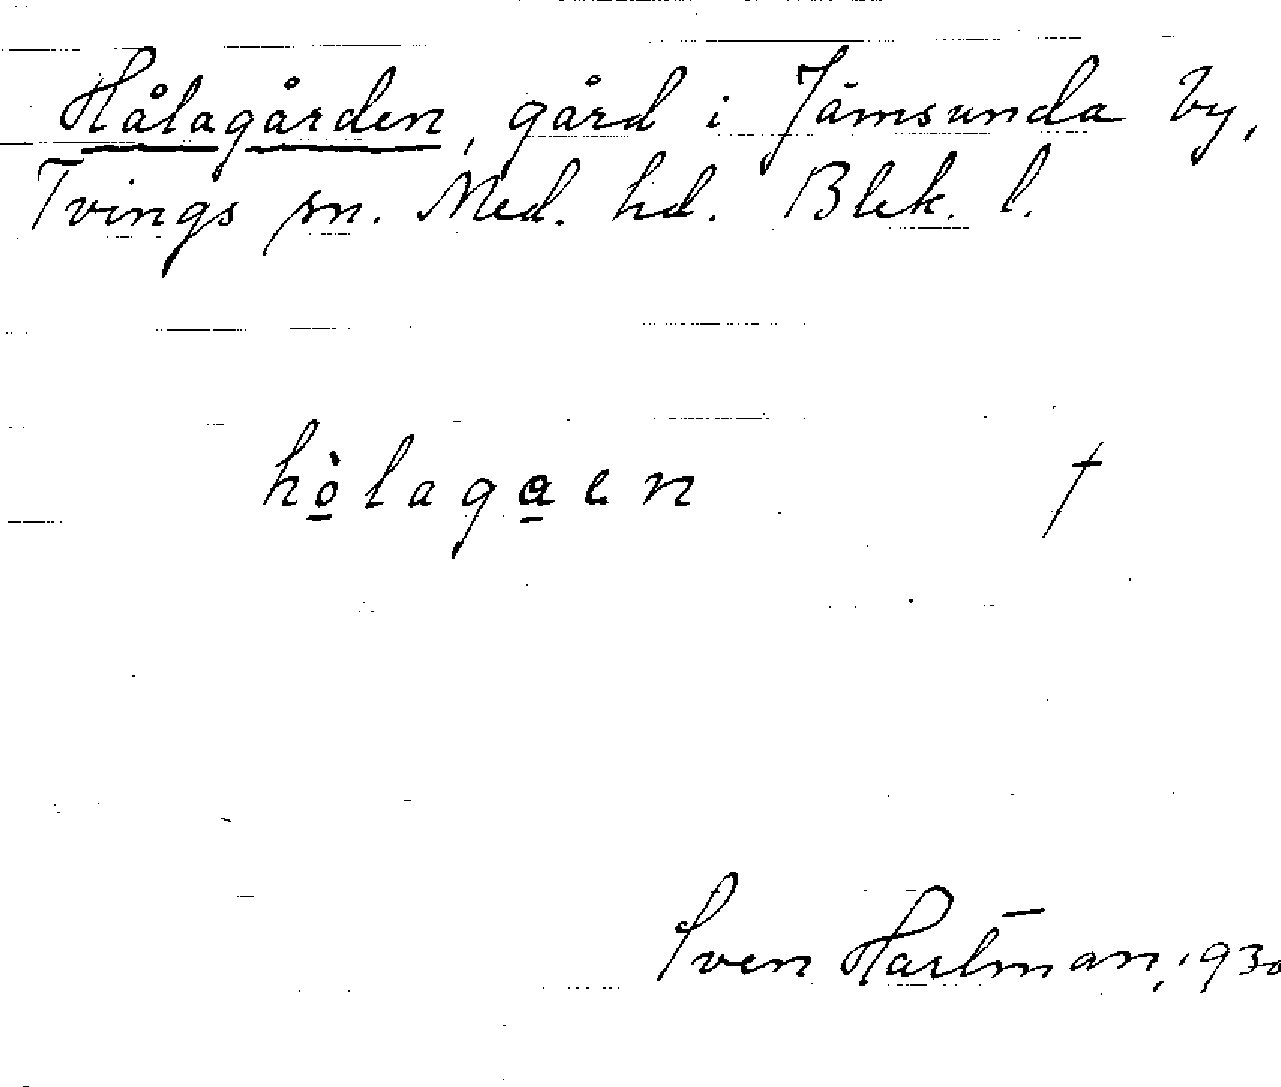 Hålagården, gård i Jämsunda by,
Tvings sn. Med. hd. Blek. l.
hòlagaen †
Sven Hartman, 1930